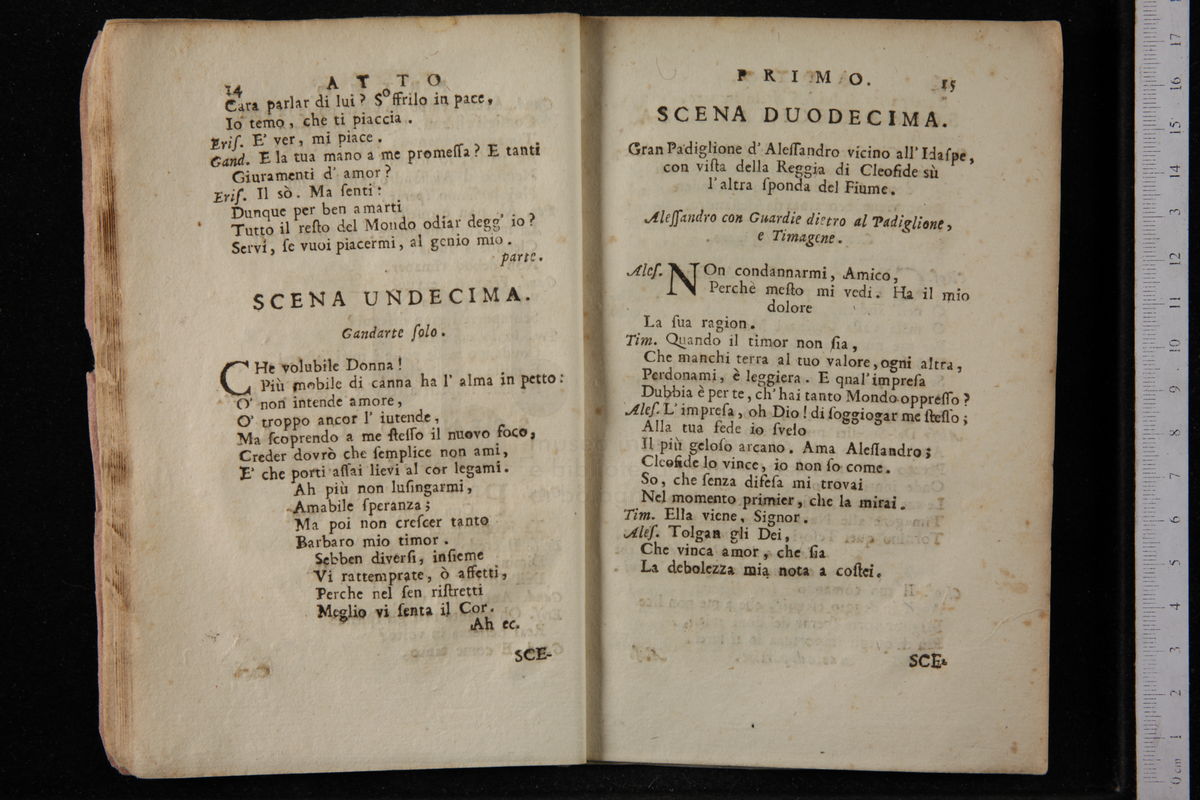 14 ATTO
Cara parlar di lui? Soffrilo in pace,
Io temo, che ti piaccia.
Eriſ. E' ver, mi piace.
Gand. E la tua mano a me promeſſa? E tanti
Giuramenti d' amor?
Eriſ. Il sò. Ma ſenti:
Dunque per ben amarti
Tutto il reſto del Mondo odiar degg' io?
Servi, ſe vuoi piacermi, al genio mio.
parte.
SCENA UNDECIMA.
Gandarte ſolo.
CHe volubile Donna!
Più mobile di canna ha l' alma in petto:
O' non intende amore,
O' troppo ancor l' iutende,
Ma ſcoprendo a me ſteſſo il nuovo foco,
Creder dovrò che ſemplice non ami,
E' che porti aſſai lievi al cor legami.
Ah più non luſingarmi,
Amabile ſperanza;
Ma poi non creſcer tanto
Barbaro mio timor.
Sebben diverſi, inſieme
Vi rattemprate, ò affetti,
Perche nel ſen riſtretti
Meglio vi ſenta il Cor.
Ah ec.
SCE-
PRIMO. 15
SCENA DUODECIMA.
Gran Padiglione d' Aleſſandro vicino all' Idaſpe,
con viſta della Reggia di Cleofide sù
l' altra ſponda del Fiume.
Aleſſandro con Guardie dietro al Padiglione,
e Timagene.
Aleſ. NOn condannarmi, Amico,
Perchè meſto mi vedi. Ha il mio
dolore
La ſua ragion.
Tim. Quando il timor non ſia,
Che manchi terra al tuo valore, ogni altra,
Perdonami, è leggiera. E qnal' impreſa
Dubbia è per te, ch' hai tanto Mondo oppreſſo?
Aleſ. L' impreſa, oh Dio! di ſoggiogar me ſteſſo;
Alla tua fede io ſvelo
Il più geloſo arcano. Ama Aleſſandro;
Cleofide lo vince, io non ſo come.
So, che ſenza difeſa mi trovai
Nel momento primier, che la mirai.
Tim. Ella viene, Signor.
Aleſ. Tolgan gli Dei,
Che vinca amor, che ſia
La debolezza mia nota a coſtei.
SCE-
0 cm 1 2 3 4 5 6 7 8 9 10 11 12 13 14 15 16 17